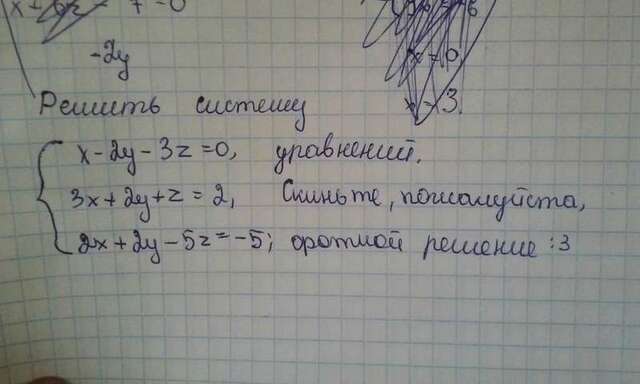 -2y
Решить систему
x-2y-3z=0, уравнений.
3x+2y+z=2, Скиньте, пожалуйста,
2x+2y-5z=-5; фоткой решение :3